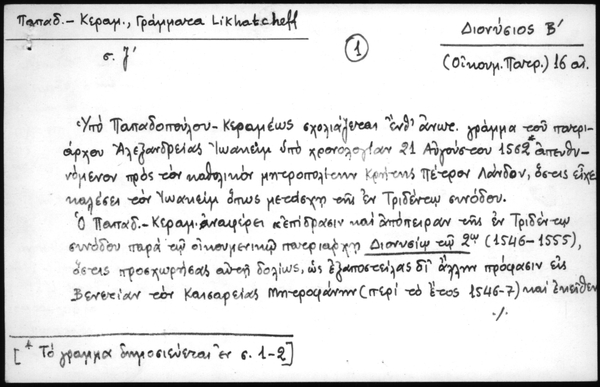 Παπαδ.-Κεραμ., Γράμματα Likhatcheff
σ. ζ'
1
Διονύσιος Β'
(Οἰκουμ. Πατρ.) 16 αἰ.
Ὑπό Παπαδοπούλου-Κεραμέως σχολιάζεται ἐνθ' ἀνωτ. γράμμα* τοῦ πατρι-
άρχου Ἀλεξανδρείας Ἰωακείμ ὑπό χρονολογίαν 21 Αὐγούστου 1562 ἀπευθυ-
νόμενον πρός τόν καθολικόν μητροπολίτην Κρήτης Πέτρον Λάνδον, ὅστις εἶχε
καλέσει τόν Ἰωακείμ ὅπως μετάσχῃ τῆς ἐν Τριδέντῳ συνόδου.
Ὁ Παπαδ.-Κεραμ. ἀναφέρει κ' ἐπίδρασιν καί ἀπόπειραν τῆς ἐν Τριδέντῳ
συνόδου παρά τῷ οἰκουμενικῷ πατριάρχῃ Διονυσίῳ τῷ 2ῳ (1546-1555),
ὅστις προσχωρήσας αὐτῇ δολίως, ὡς ἐξαποστείλας δι' ἄλλην πρόφασιν εἰς
Βενετίαν τόν Καισαρείας Μητροφάνην (περί τό ἔτος 1546-7) καί ἐκεῖθεν
./.
[* Τό γράμμα δημοσιεύεται ἐν σ. 1-2]